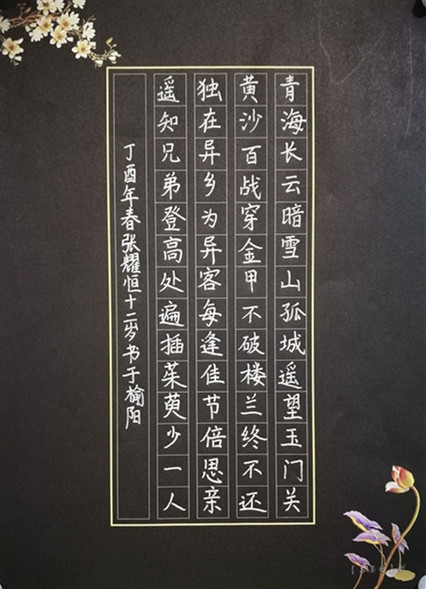 青海长云暗雪山孤城遥望玉门关
黄沙百战穿金甲不破楼兰终不还
独在异乡为异客每逢佳节倍思亲
遥知兄弟登高处遍插茱萸少一人
丁酉年春张耀恒十二岁书于榆阳